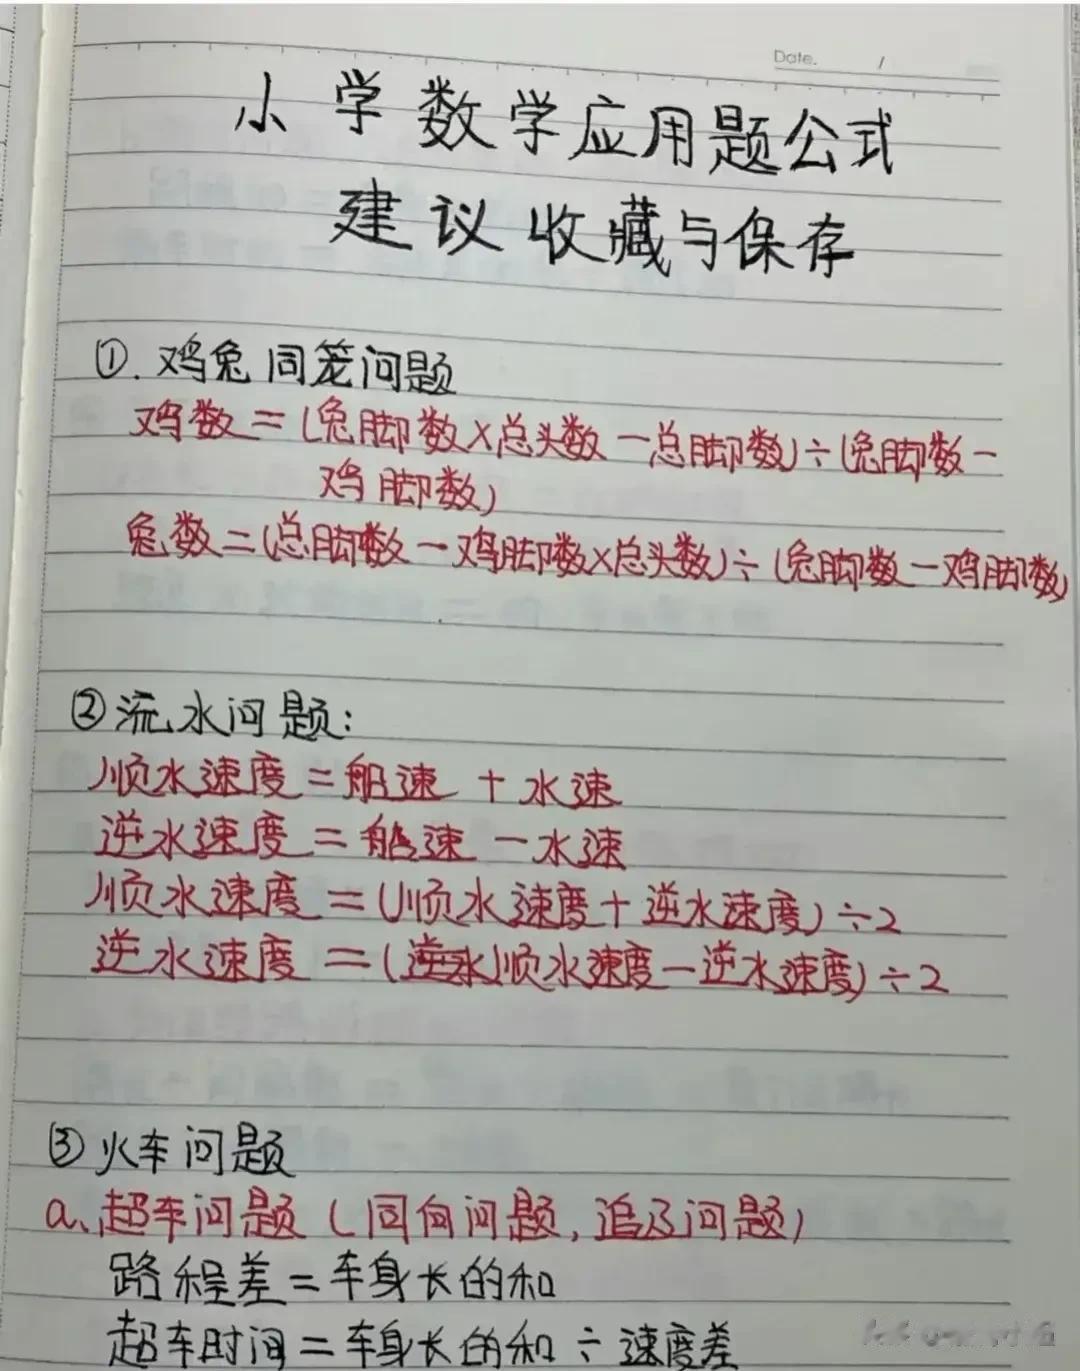 Date. /
小学数学应用题公式
建议收藏与保存
①.鸡兔同笼问题
鸡数=(兔脚数×总头数-总脚数)÷(兔脚数-
鸡脚数)
兔数=(总脚数-鸡脚数×总头数)÷(兔脚数-鸡脚数)
②流水问题:
顺水速度=船速+水速
逆水速度=船速-水速
顺水速度=(顺水速度+逆水速度)÷2
逆水速度=(逆水顺水速度-逆水速度)÷2
③火车问题
a、超车问题(同向问题,追及问题)
路程差=车身长的和
超车时间=车身长的和÷速度差